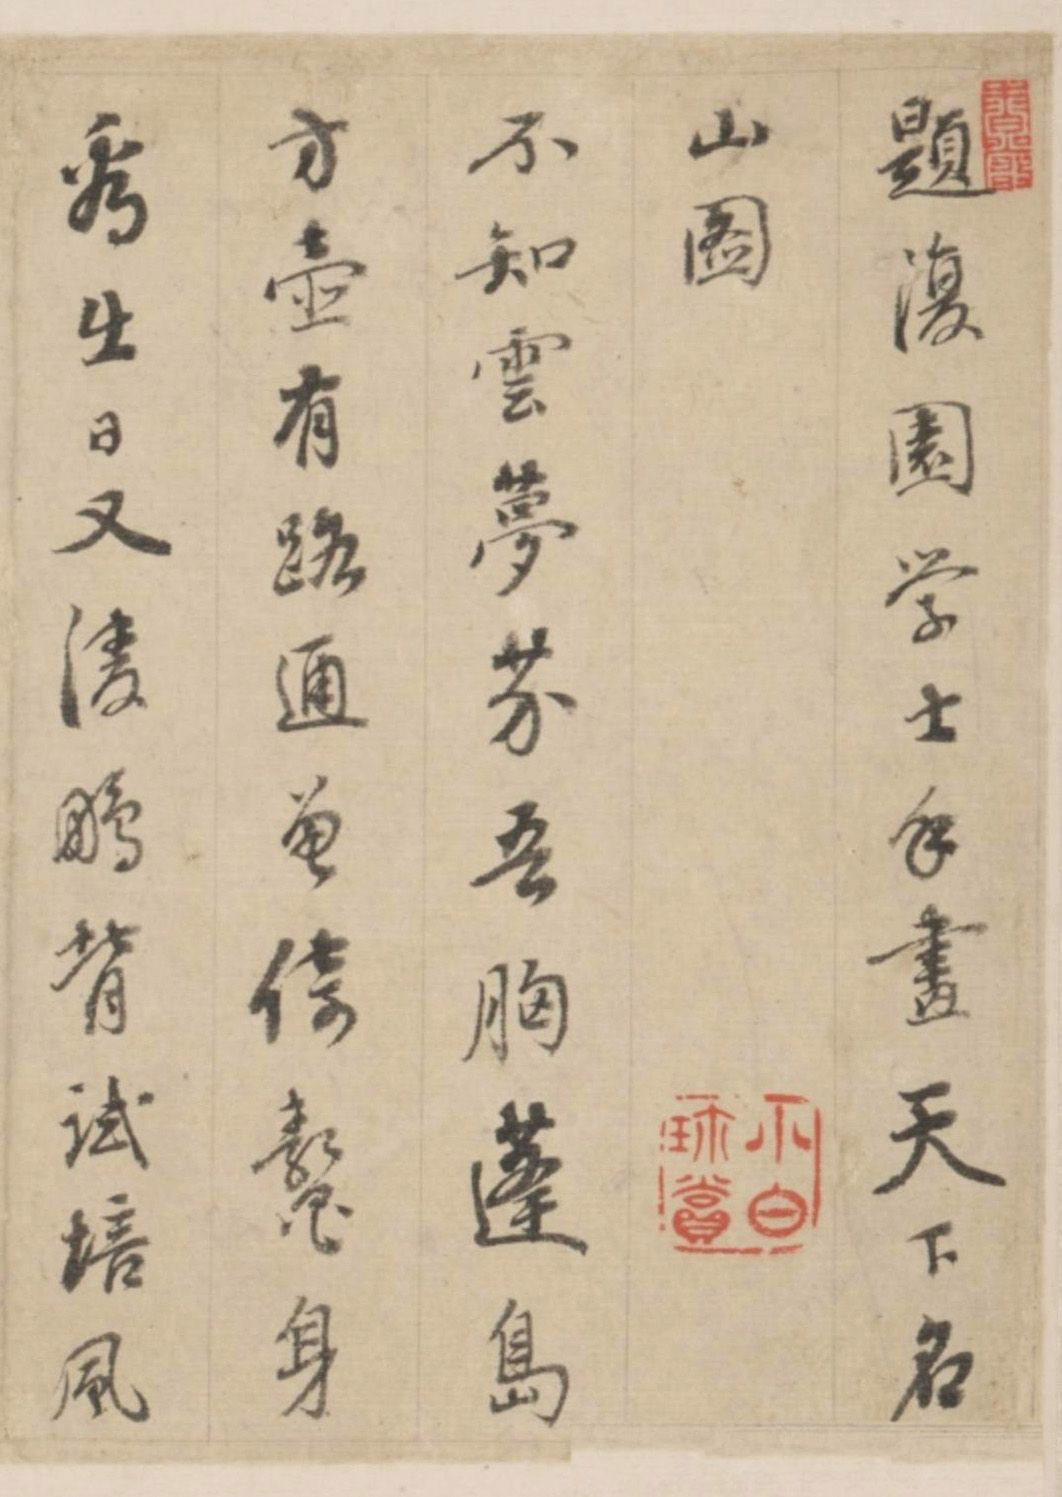 題復園学士手畫天下名
山圖
不知雲夢芥吾胸蓬島
方壺有路通曾倚鰲身
看出日又淩鵬背試培風